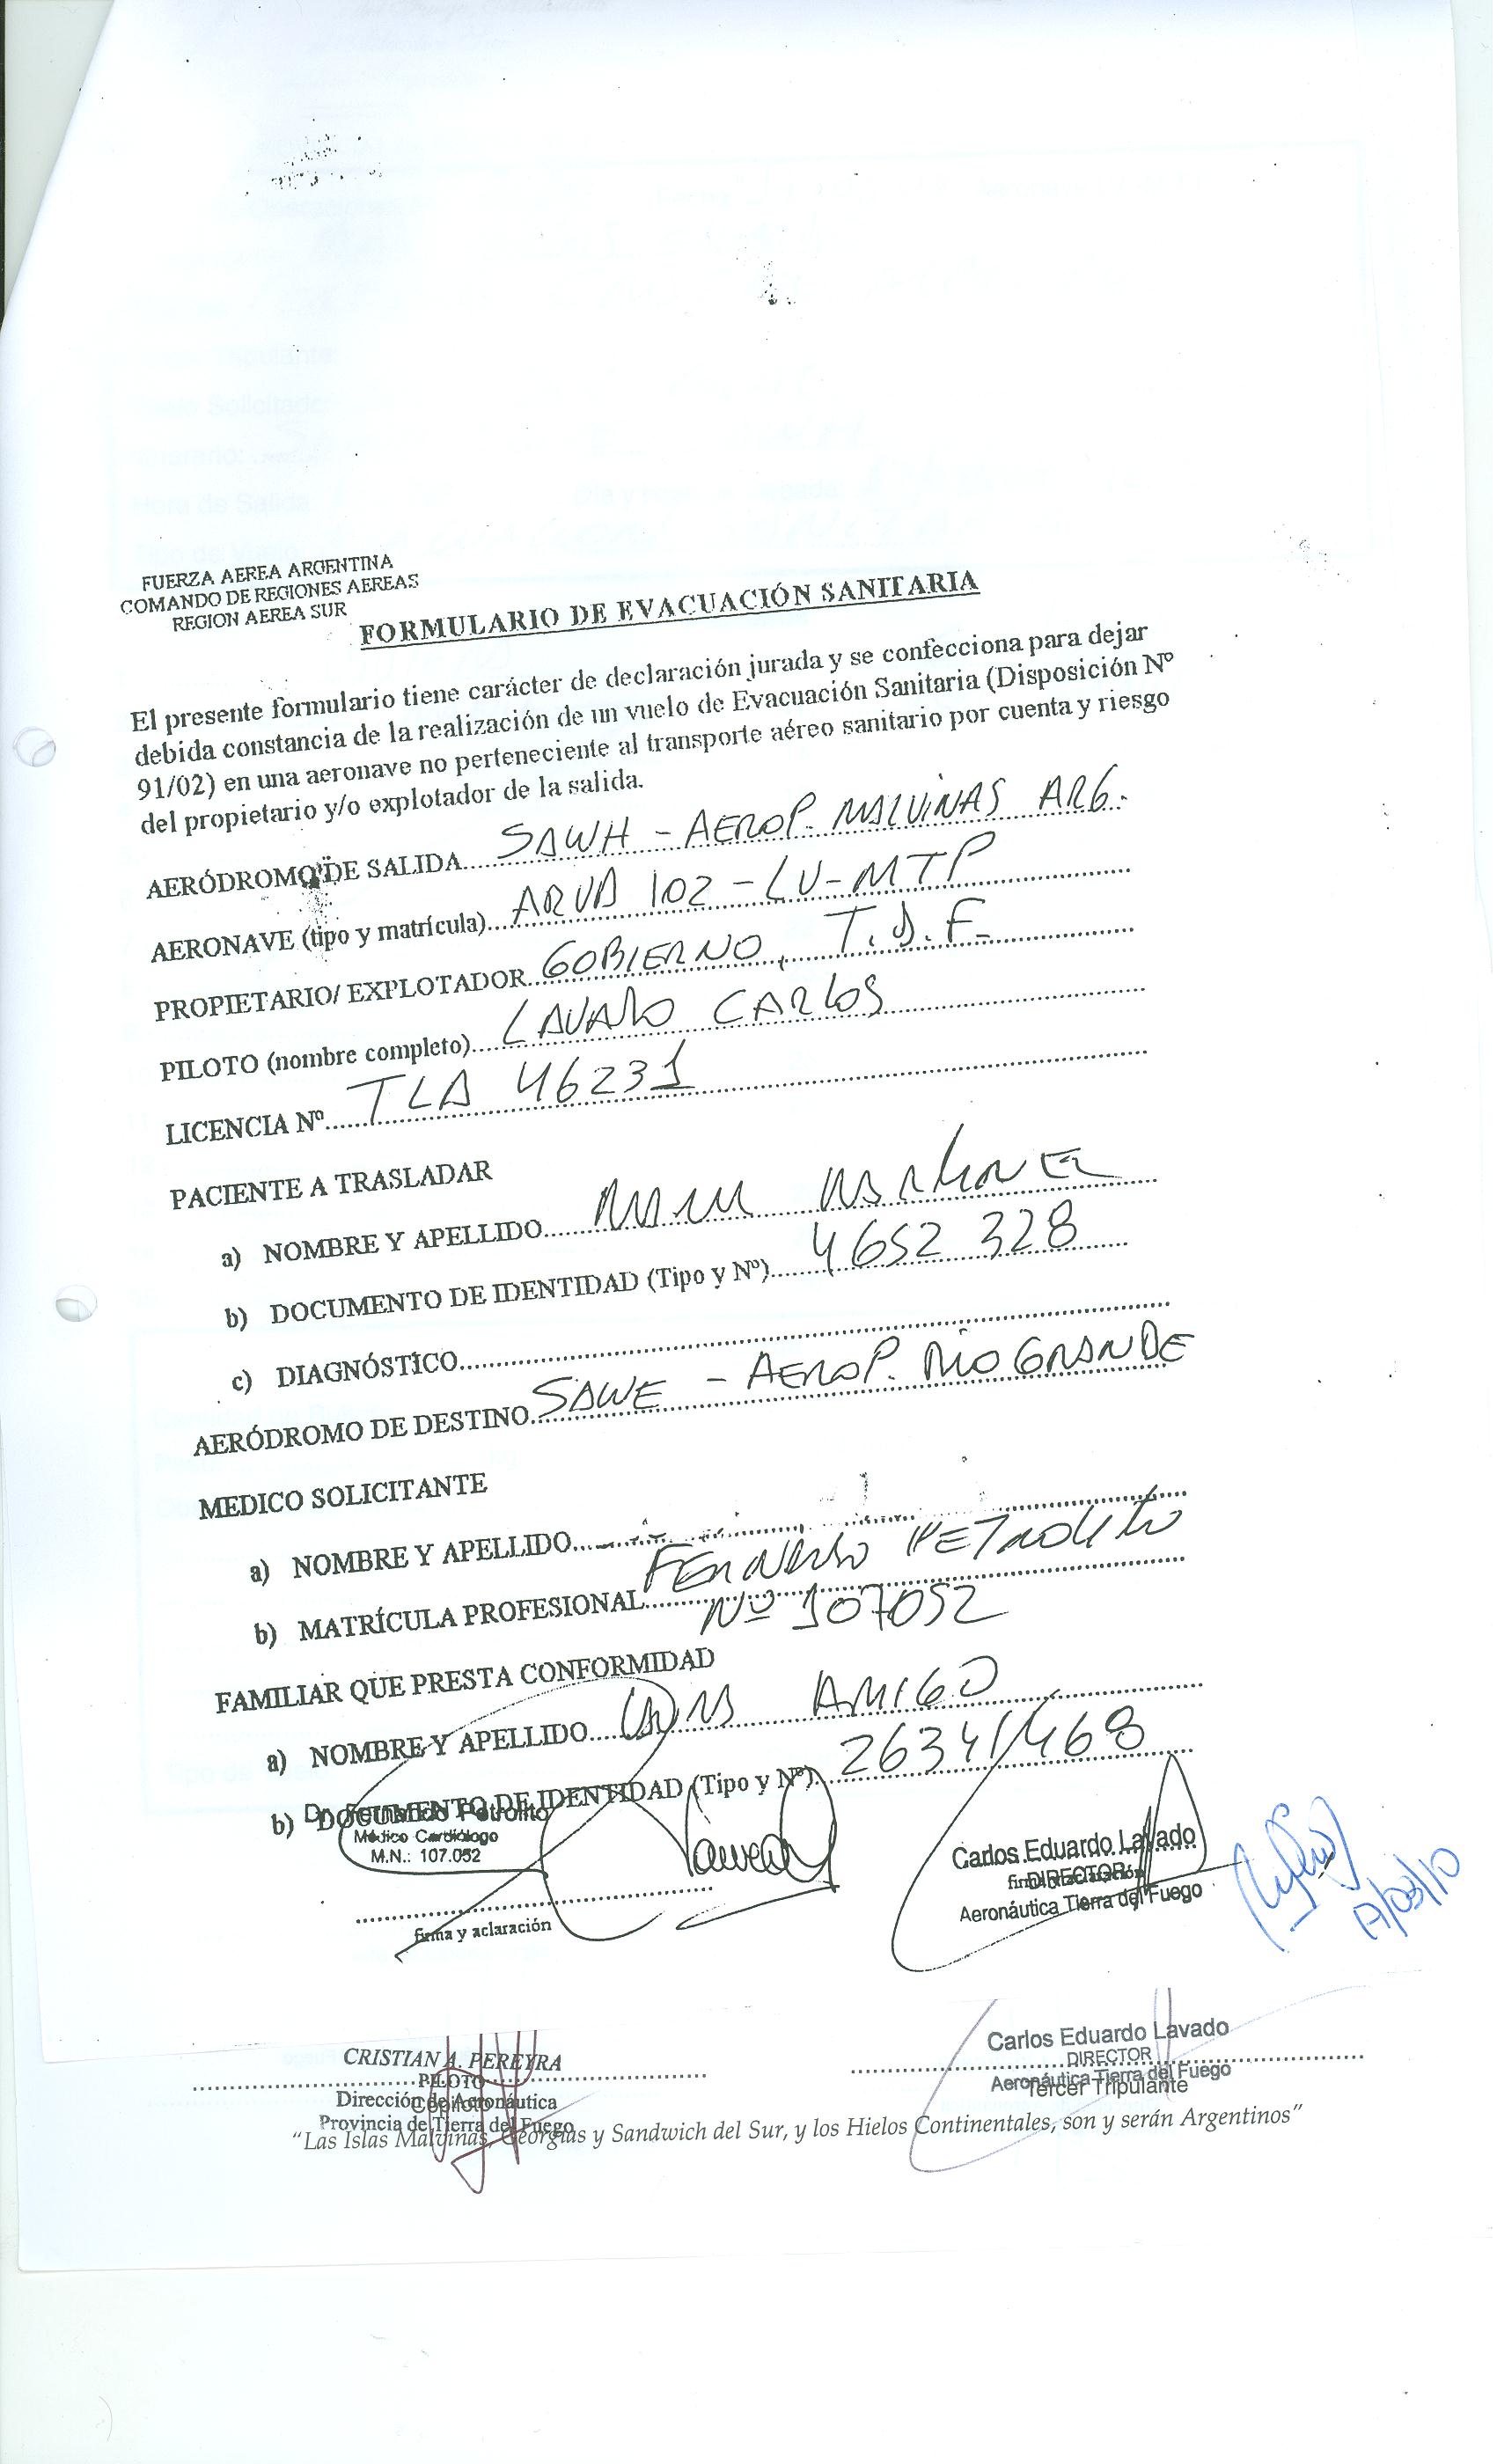 FUERZA AEREA ARGENTINA
COMANDO DE REGIONES AEREAS
REGION AEREA SUR
FORMULARIO DE EVACUACIÓN SANITARIA
El presente formulario tiene carácter de declaración jurada y se confecciona para dejar
debida constancia de la realización de un vuelo de Evacuación Sanitaria (Disposición Nº
91/02) en una aeronave no perteneciente al transporte aéreo sanitario por cuenta y riesgo
del propietario y/o explotador de la salida.
AERÓDROMO DE SALIDA SAWH - AEROP. MALVINAS ARG.
AERONAVE (tipo y matrícula) ARVA 102 - LV-MTP
PROPIETARIO/ EXPLOTADOR GOBIERNO T.D.F.
PILOTO (nombre completo) LAVADO CARLOS
LICENCIA Nº TLA 46231
PACIENTE A TRASLADAR
a) NOMBRE Y APELLIDO
b) DOCUMENTO DE IDENTIDAD (Tipo y Nº) 4652 328
c) DIAGNÓSTICO
AERÓDROMO DE DESTINO SAWE - AEROP. RIO GRANDE
MEDICO SOLICITANTE
a) NOMBRE Y APELLIDO FERNANDO PETROLITO
b) MATRÍCULA PROFESIONAL Nº 107052
FAMILIAR QUE PRESTA CONFORMIDAD
a) NOMBRE Y APELLIDO AMIGO
b) DOCUMENTO DE IDENTIDAD (Tipo y Nº) 26341468
Dr. Fernando Petrolito
Médico Cardiólogo
M.N.: 107.052
firma y aclaración
Carlos Eduardo Lavado
DIRECTOR
firma y aclaración
Aeronáutica Tierra del Fuego
17/03/10
CRISTIAN A. PEREYRA
PILOTO
Dirección de Aeronáutica
Copiloto
Provincia de Tierra del Fuego
Carlos Eduardo Lavado
DIRECTOR
Aeronáutica Tierra del Fuego
Tercer Tripulante
"Las Islas Malvinas, Georgias y Sandwich del Sur, y los Hielos Continentales, son y serán Argentinos"